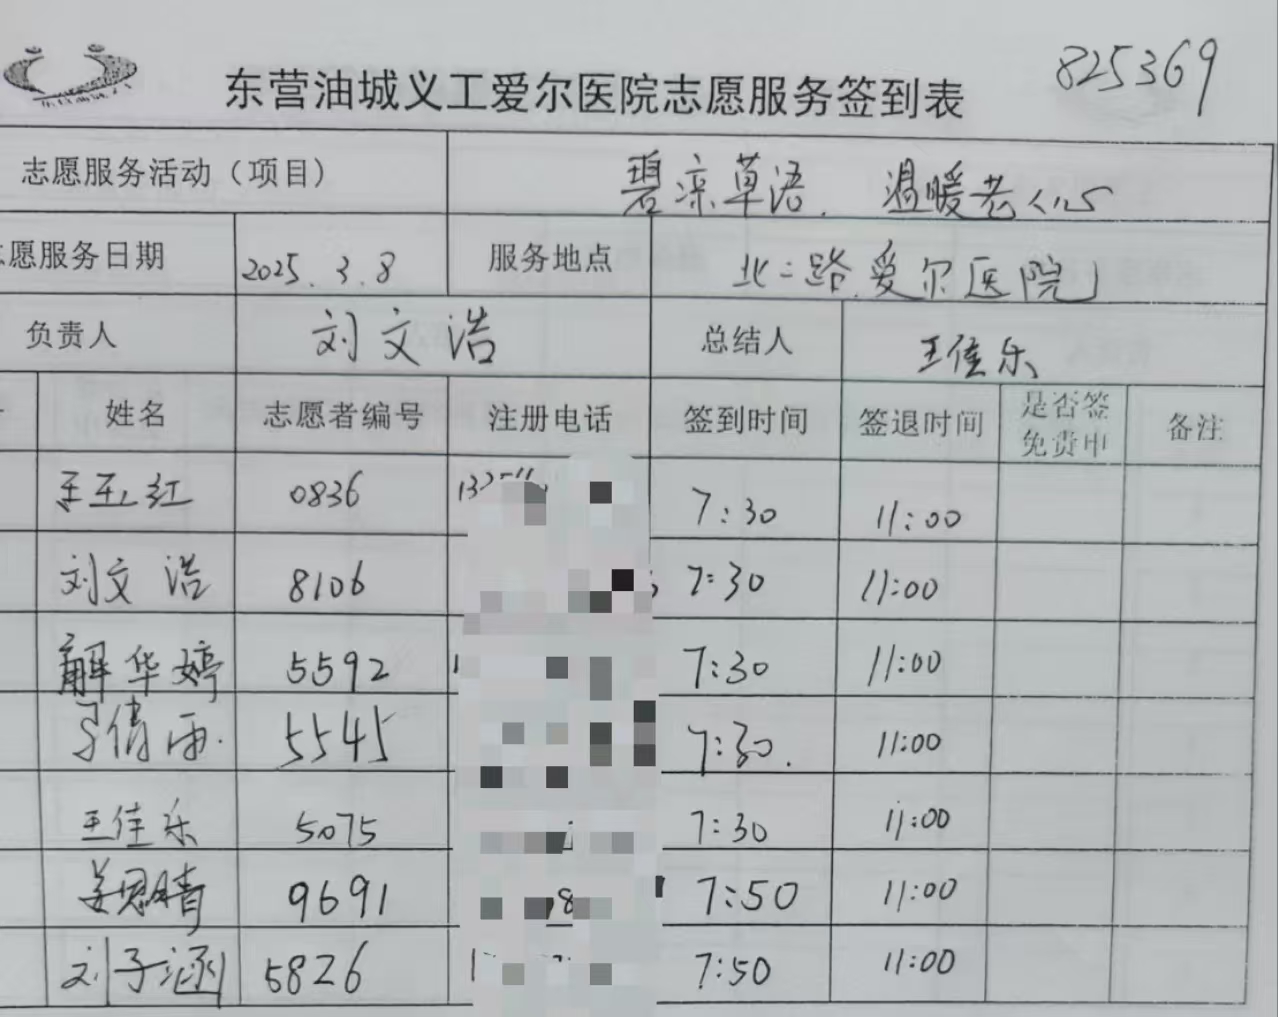 825369
东营油城义工爱尔医院志愿服务签到表
志愿服务活动（项目） 碧凉草语. 温暖老人心
愿服务日期 2025.3.8 服务地点 北二路.爱尔医院
负责人 刘文浩 总结人 王佳乐
姓名 志愿者编号 注册电话 签到时间 签退时间 是否签免责申 备注
王玉红 0836 7:30 11:00
刘文浩 8106 7:30 11:00
解华婷 5592 7:30 11:00
倩雨. 5545 7:30. 11:00
王佳乐 5075 7:30 11:00
姜恩晴 9691 7:50 11:00
刘子涵 5826 7:50 11:00